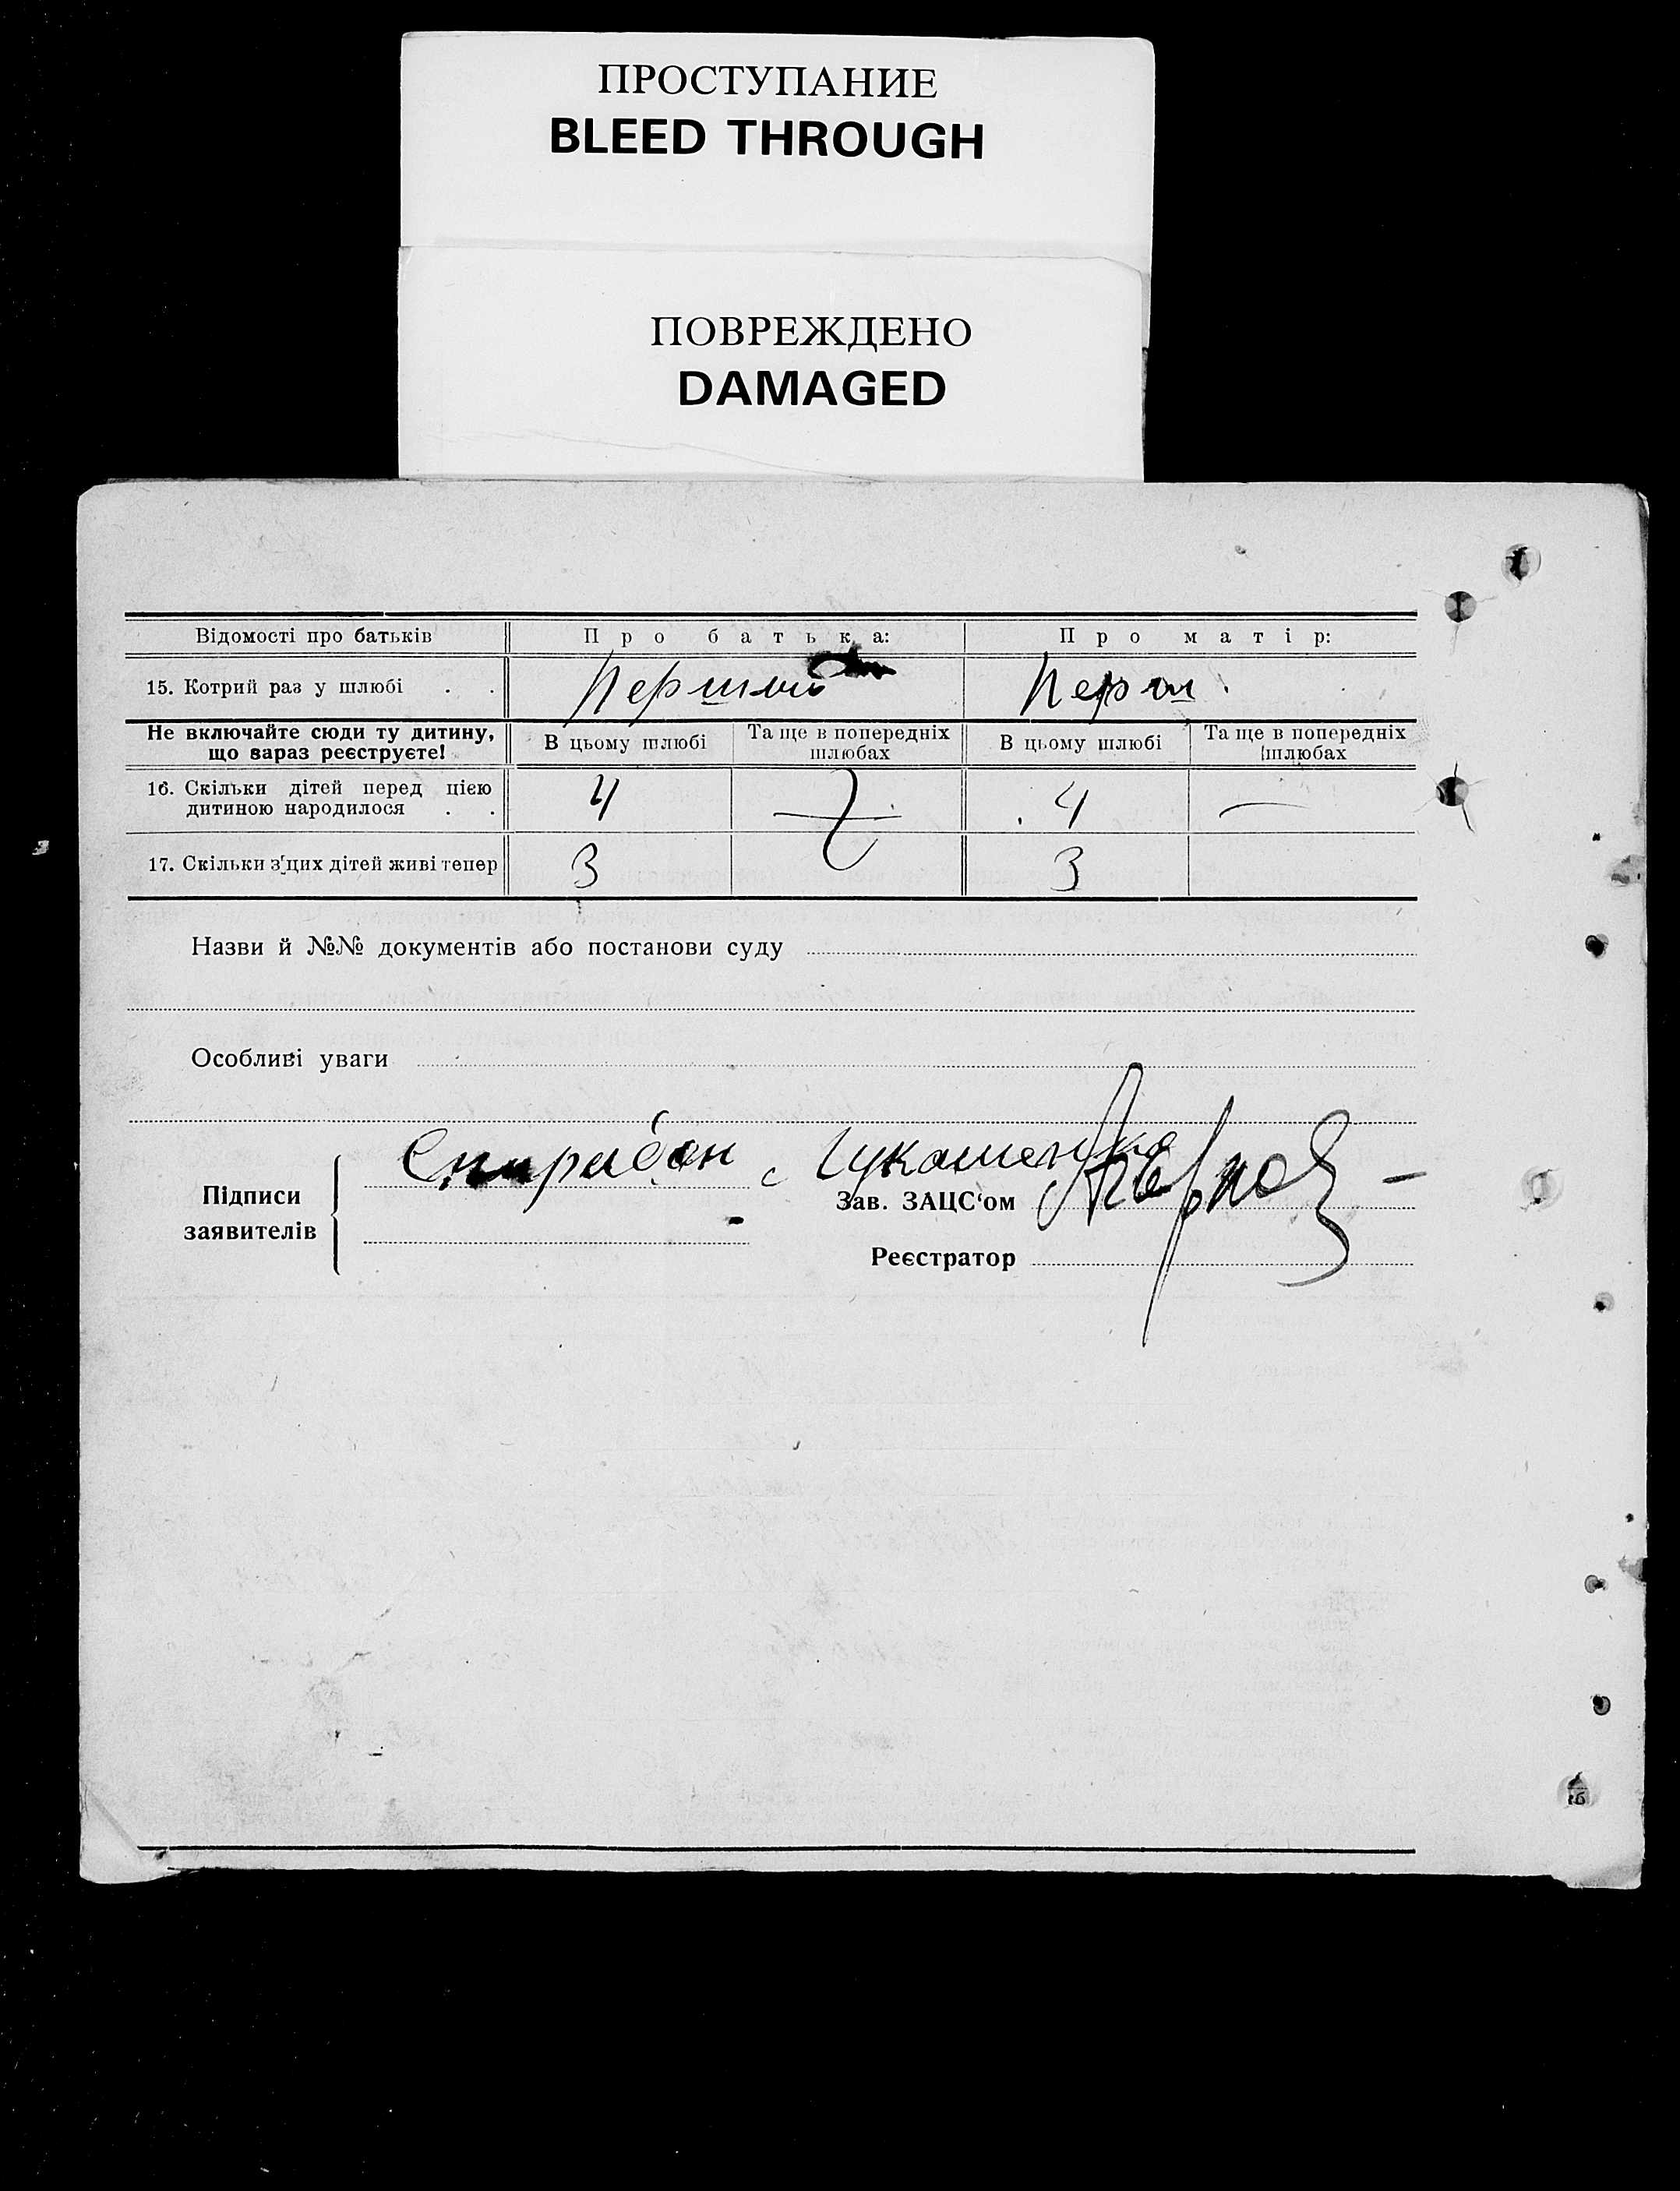 ПРОСТУПАНИЕ
BLEED THROUGH
ПОВРЕЖДЕНО
DAMAGED
Відомості про батьків Про батька: Про матір:
15. Котрий раз у шлюбі . . Перший Перш.
Не включайте сюди ту дитину, що зараз реєструєте! В цьому шлюбі Та ще в попередніх шлюбах В цьому шлюбі Та ще в попередніх шлюбах
16. Скільки дітей перед цією дитиною народилося . . 4 — 4 —
17. Скільки з цих дітей живі тепер 3 3
Назви й №№ документів або постанови суду
Особливі уваги
Підписи заявителів
Спиридон Лукашенко
Зав. ЗАЦС‘ом
Реєстратор